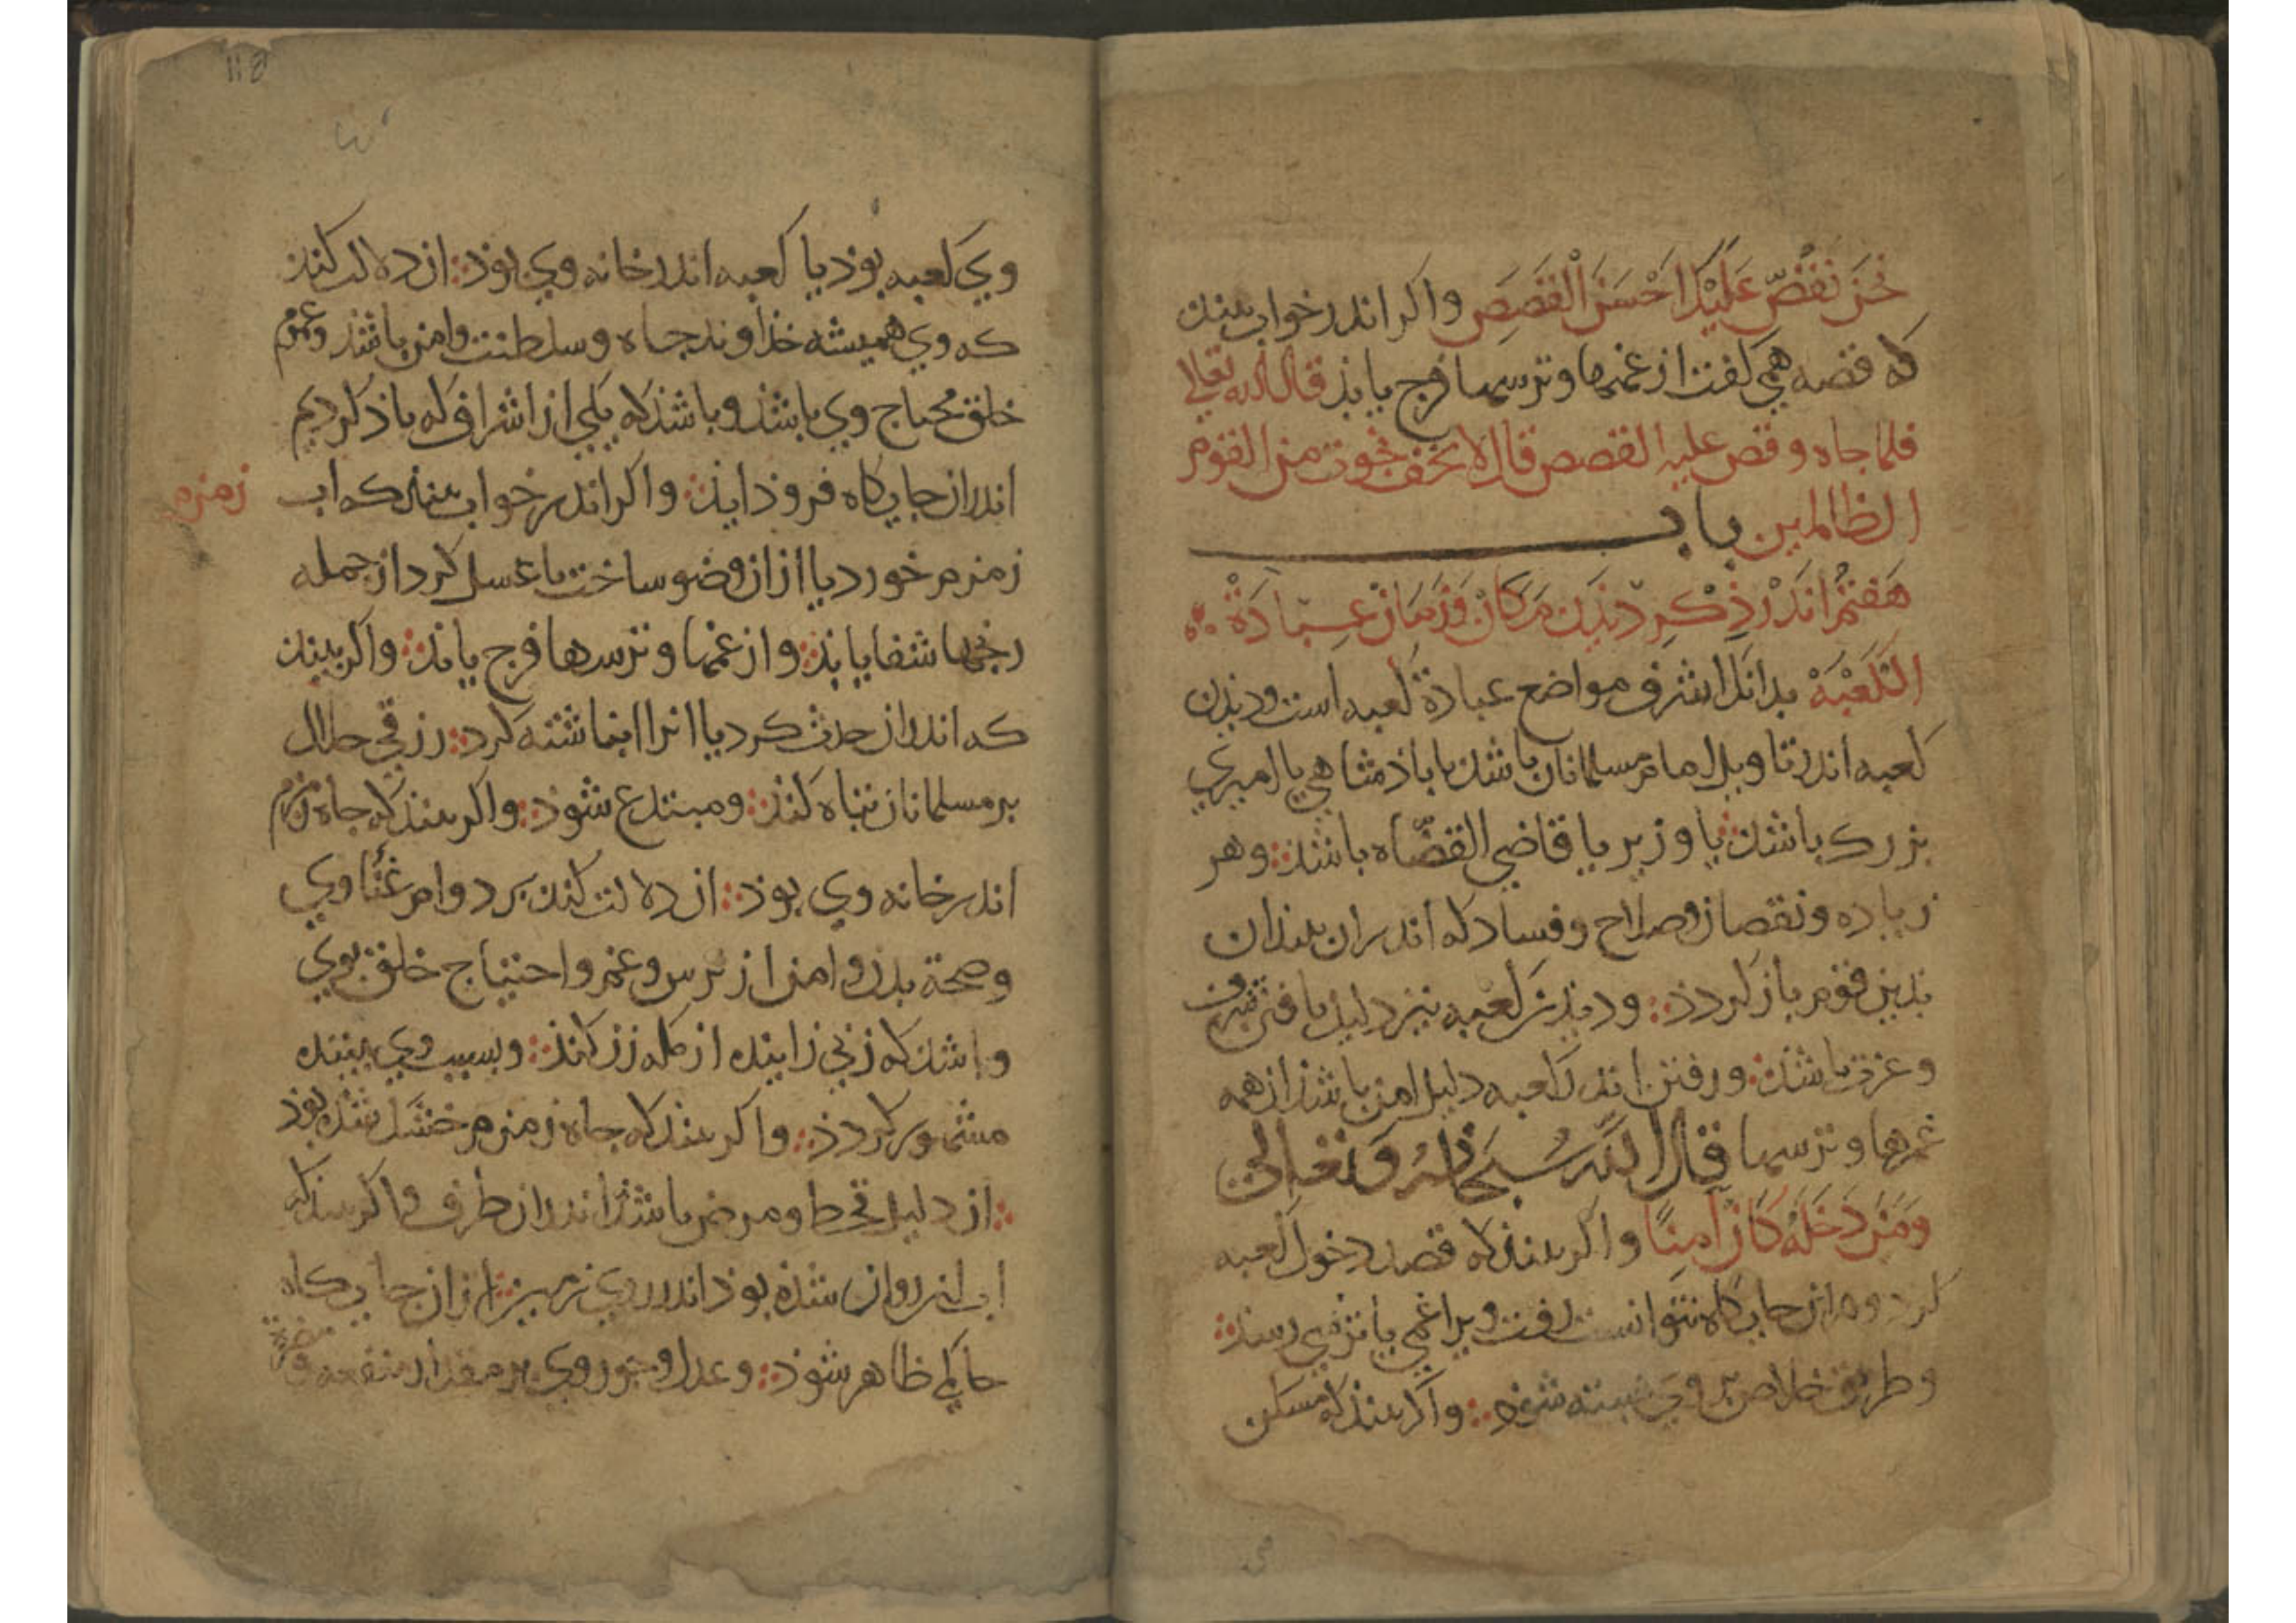 نَحْنُ نَقُصُّ عَلَيْكَ اَحْسَنَ الْقَصَصِ واكر اندر خواب بيند
كه قصه همي كفت از غمها و ترسها فرج يابذ قال الله تعالي
فلما جاه وقص عليه القصص قال لا تخف نجوت من القوم
الظالمين باب
هَفتُم اندَر ذِكرِ ديذن مَكان وَزَمَان عِبَادَة
الكَعْبَة بدانك اشرف مواضع عبادة كعبه است وديذن
كعبه اندر تاويل امام مسلمانان باشد يا باذشاهي يا اميري
بزرك باشد يا وزير يا قاضي القضاه باشد وهر
زياده ونقصان وصلاح وفساد كه اندران بيند ان
بذين قوم باز كردذ وديذن كعبه نيز دليل يافتن شرف
وعزت باشد ورفتن اندر كعبه دليل امن باشد از همه
غمها وترسها قال الله سُبحَانهُ وَتَعَالى
وَمَنْ دَخَلَهُ كَانَ آمِنًا واكر بيند كه قصد دخول كعبه
كرد واندران جايكاه نتوانست رفت ويرا غمي يا ترسي رسد
وطريق خلاص بر وي بسته شوذ واكر بيند كه مسكن
وي كعبه بوذ يا كعبه اندر خانه وي بوذ ان دلالت كند
كه وي هميشه خداوند جاه وسلطنت وامن باشد وعموم
خلق محتاج وي باشد وباشد كه يكي از اشراف كه ياذ كرديم
اندران جايكاه فروذ ايذ واكر اندر خواب بيند كه اب
زمزم
زمزم خورد يا از ان وضو ساخت يا غسل كرد از جمله
رنجها شفا يابذ واز غمها وترسها فرج يابذ واكر بيند
كه اندران حدث كرد يا انرا انباشته كرد رزقي حلال
بر مسلمانان تباه كند ومبتدع شوذ واكر بيند كه چاه زمزم
اندر خانه وي بوذ ان دلالت كند بر دوام غنا وي
وصحة بدن وامن از ترس وغم واحتياج خلق بوي
وباشد كه زني زاينده از كله زن كند وبسبب وي بيننده
مشهور كردذ واكر بيند كه چاه زمزم خشك شده بوذ
ان دليل قحط ومرض باشد اندران طرف واكر بيند كه
اب ان روان شذه بوذ اندر روي زمين از ان جايكاه
حاكمي ظاهر شوذ وعدل وجور وي بر مقدار منفعه ومضرة